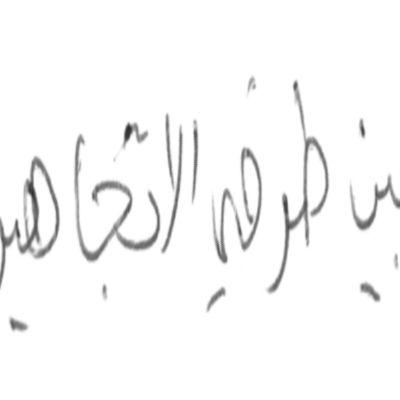 بين طرفي الاتجاهين